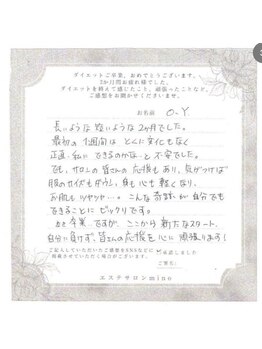 ダイエットご卒業、おめでとうございます。
2か月間お疲れ様でした。
ダイエットを終えて感じたこと、頑張ったことなど、
ご感想をお聞かせください。
お名前 O-Y
長いような短いような2か月でした。
最初の1週間は とくに変化もなく
正直、私にできるのかな…と不安でした。
でも、サロンの皆さんの応援もあり、気がつけば
服のサイズもダウンし、身も心も軽くなり、
お肌もツヤツヤ…。こんな奇跡が自分でも
できることに ビックリです。
卒業ですが、ここから新たなスタート。
自分に負けず、皆さんの応援を心に頑張ります！
ご記入していただいたご感想をSNSなどに
掲載させていただく場合がございます。
承諾しました
ご署名:
エステサロンmino